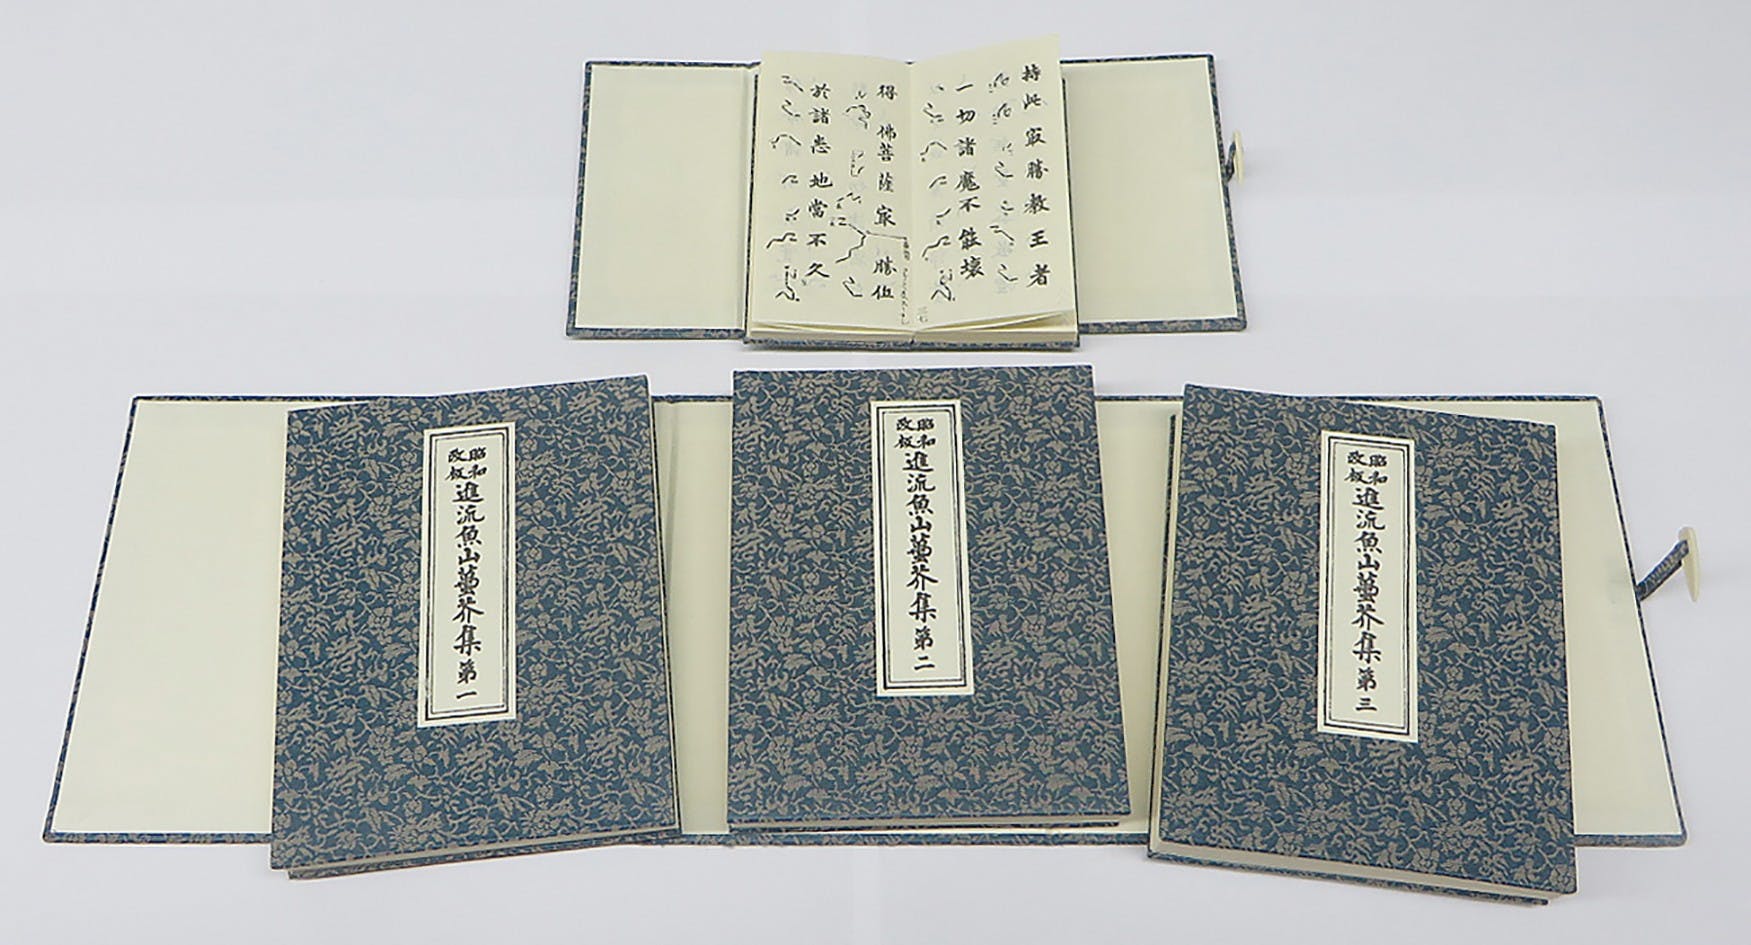 持此冣勝教王者
一切諸魔不能壞
得佛菩薩冣勝位
於諸悉地當不久
昭和改板
進流魚山蠆芥集 第一
昭和改板
進流魚山蠆芥集 第二
昭和改板
進流魚山蠆芥集 第三